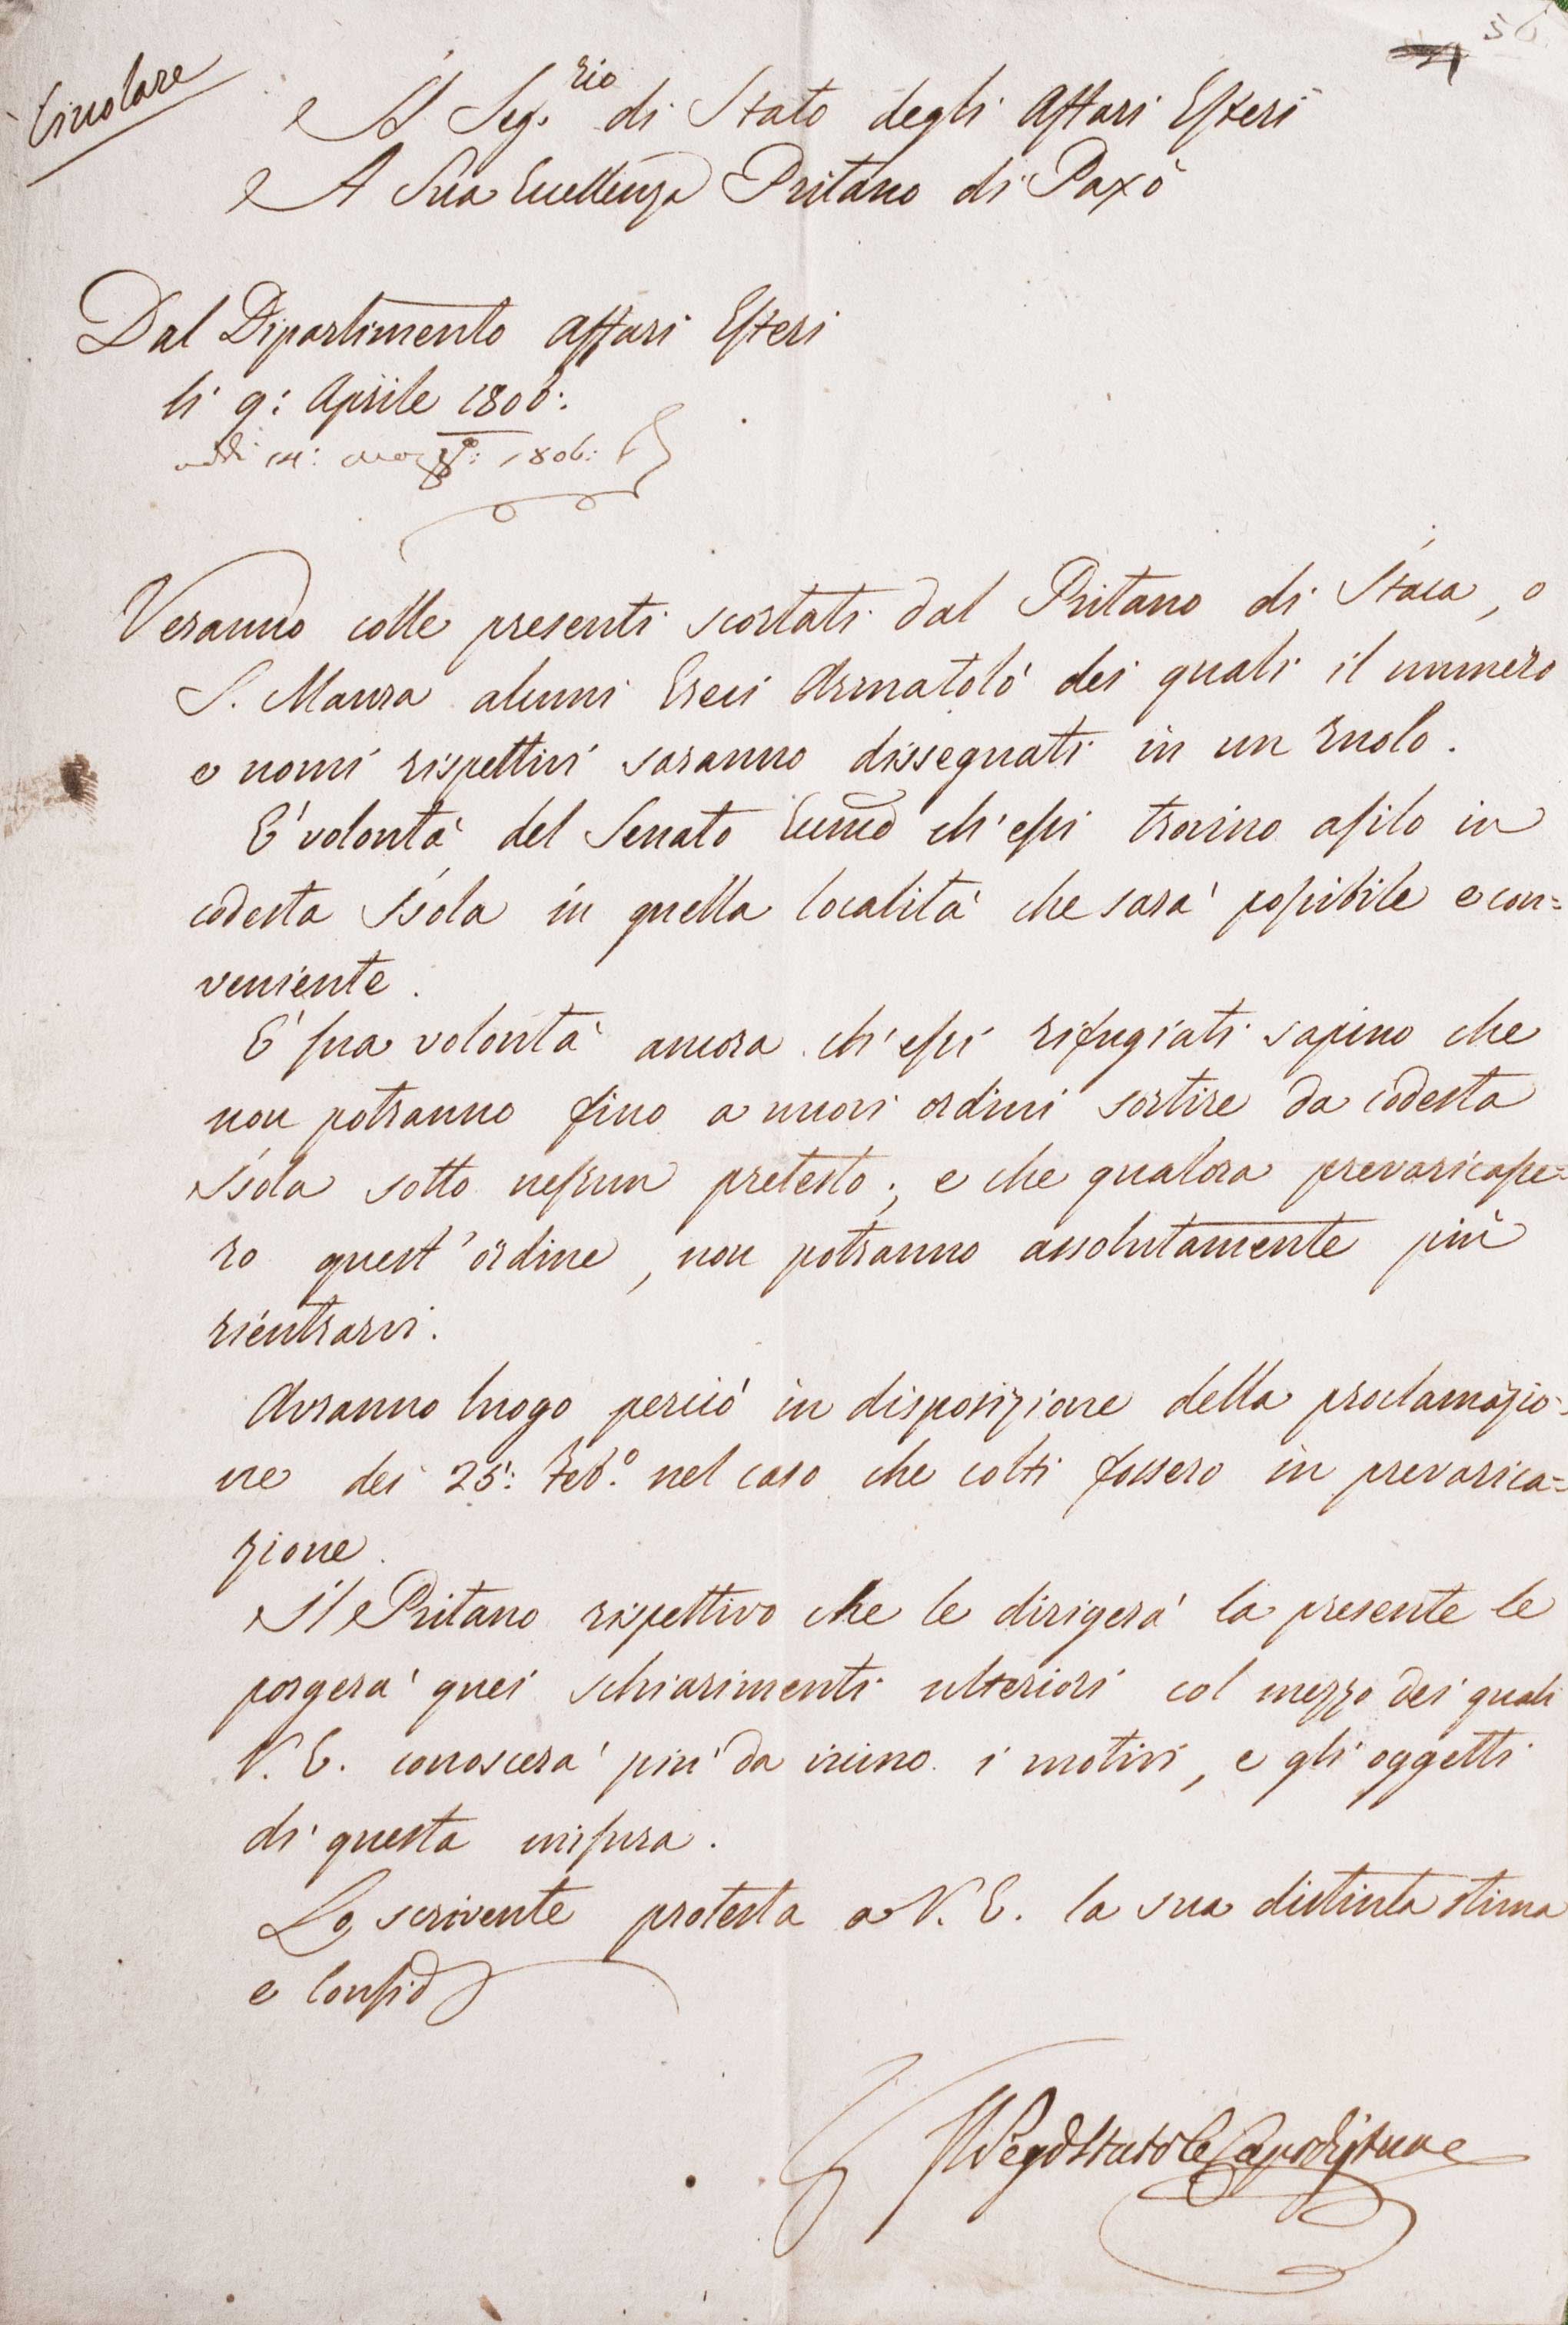 56.
Circolare
Il Seg.rio di Stato degli Affari Esteri
A Sua Eccellenza Pritano di Paxò
Dal Dipartimento Affari Esteri
li 9: Aprile 1806:
addi 14: 1806:
Veranno colle presenti scortati dal Pritano di Itaca, o
S. Maura alcuni Greci Armatolò dei quali il numero
e nomi rispettivi saranno dissegnati in un ruolo.
E' volontà del Senato Eccmo ch'essi trovino asilo in
codesta Isola in quella località che sarà possibile e con=
veniente.
E' sua volontà ancora ch'essi rifugiati sapino che
non potranno fino a nuovi ordini sortire da codesta
Isola sotto nessun pretesto; e che qualora prevaricasse=
ro quest'ordine, non potranno assolutamente più
rientrarvi.
Avranno luogo perciò in disposizione della proclamazio=
ne dei 25: Feb.o nel caso che colti fossero in prevarica=
zione.
Il Pritano rispettivo che le dirigerà la presente le
porgerà quei schiarimenti ulteriori col mezzo dei quali
V. E. conoscerà più da vicino i motivi, e gli oggetti
di questa misura.
Lo scrivente protesta a V. E. la sua distinta stima
e Consid
Il Seg d Stato Capodistria